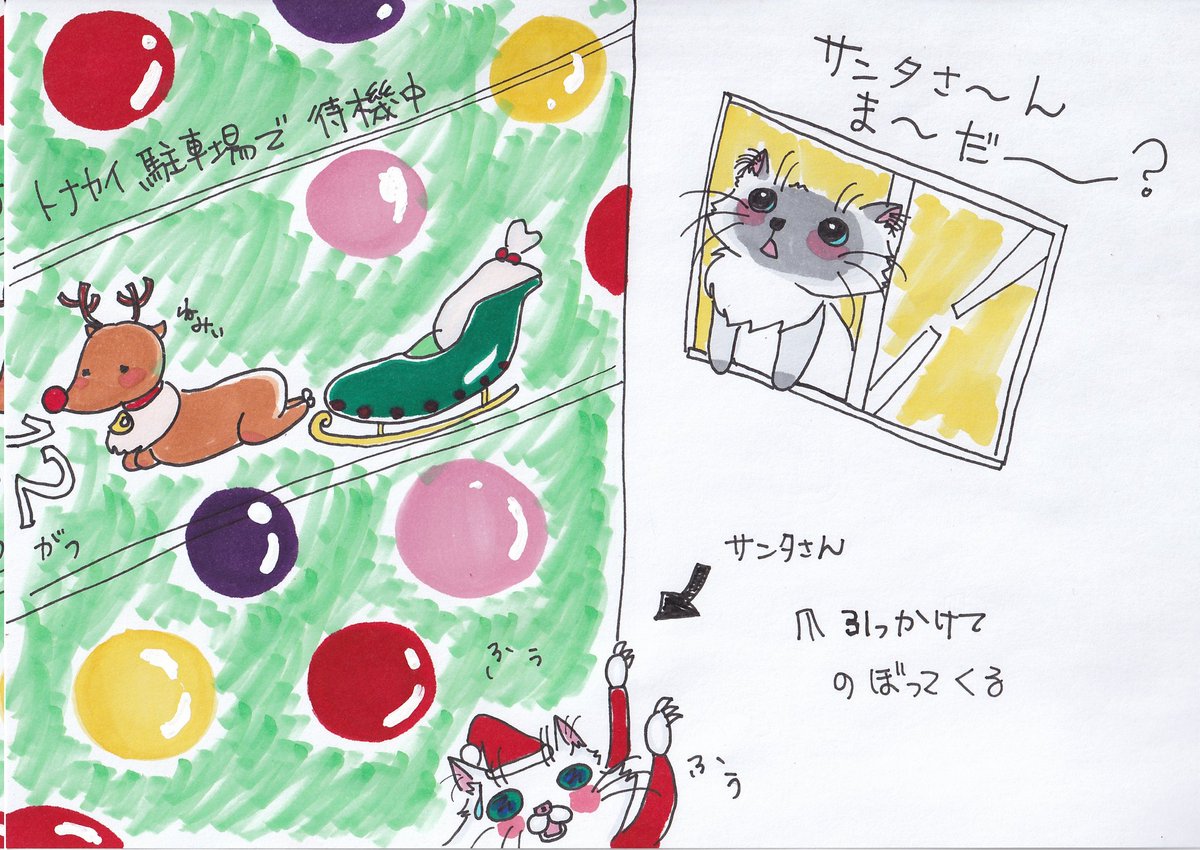 トナカイ 駐車場で 待機中
ねみぃ
12
がつ
サンタさ〜ん
ま〜だ〜?
サンタさん
爪 引っかけて
のぼってくる
ふぅ
ふぅ